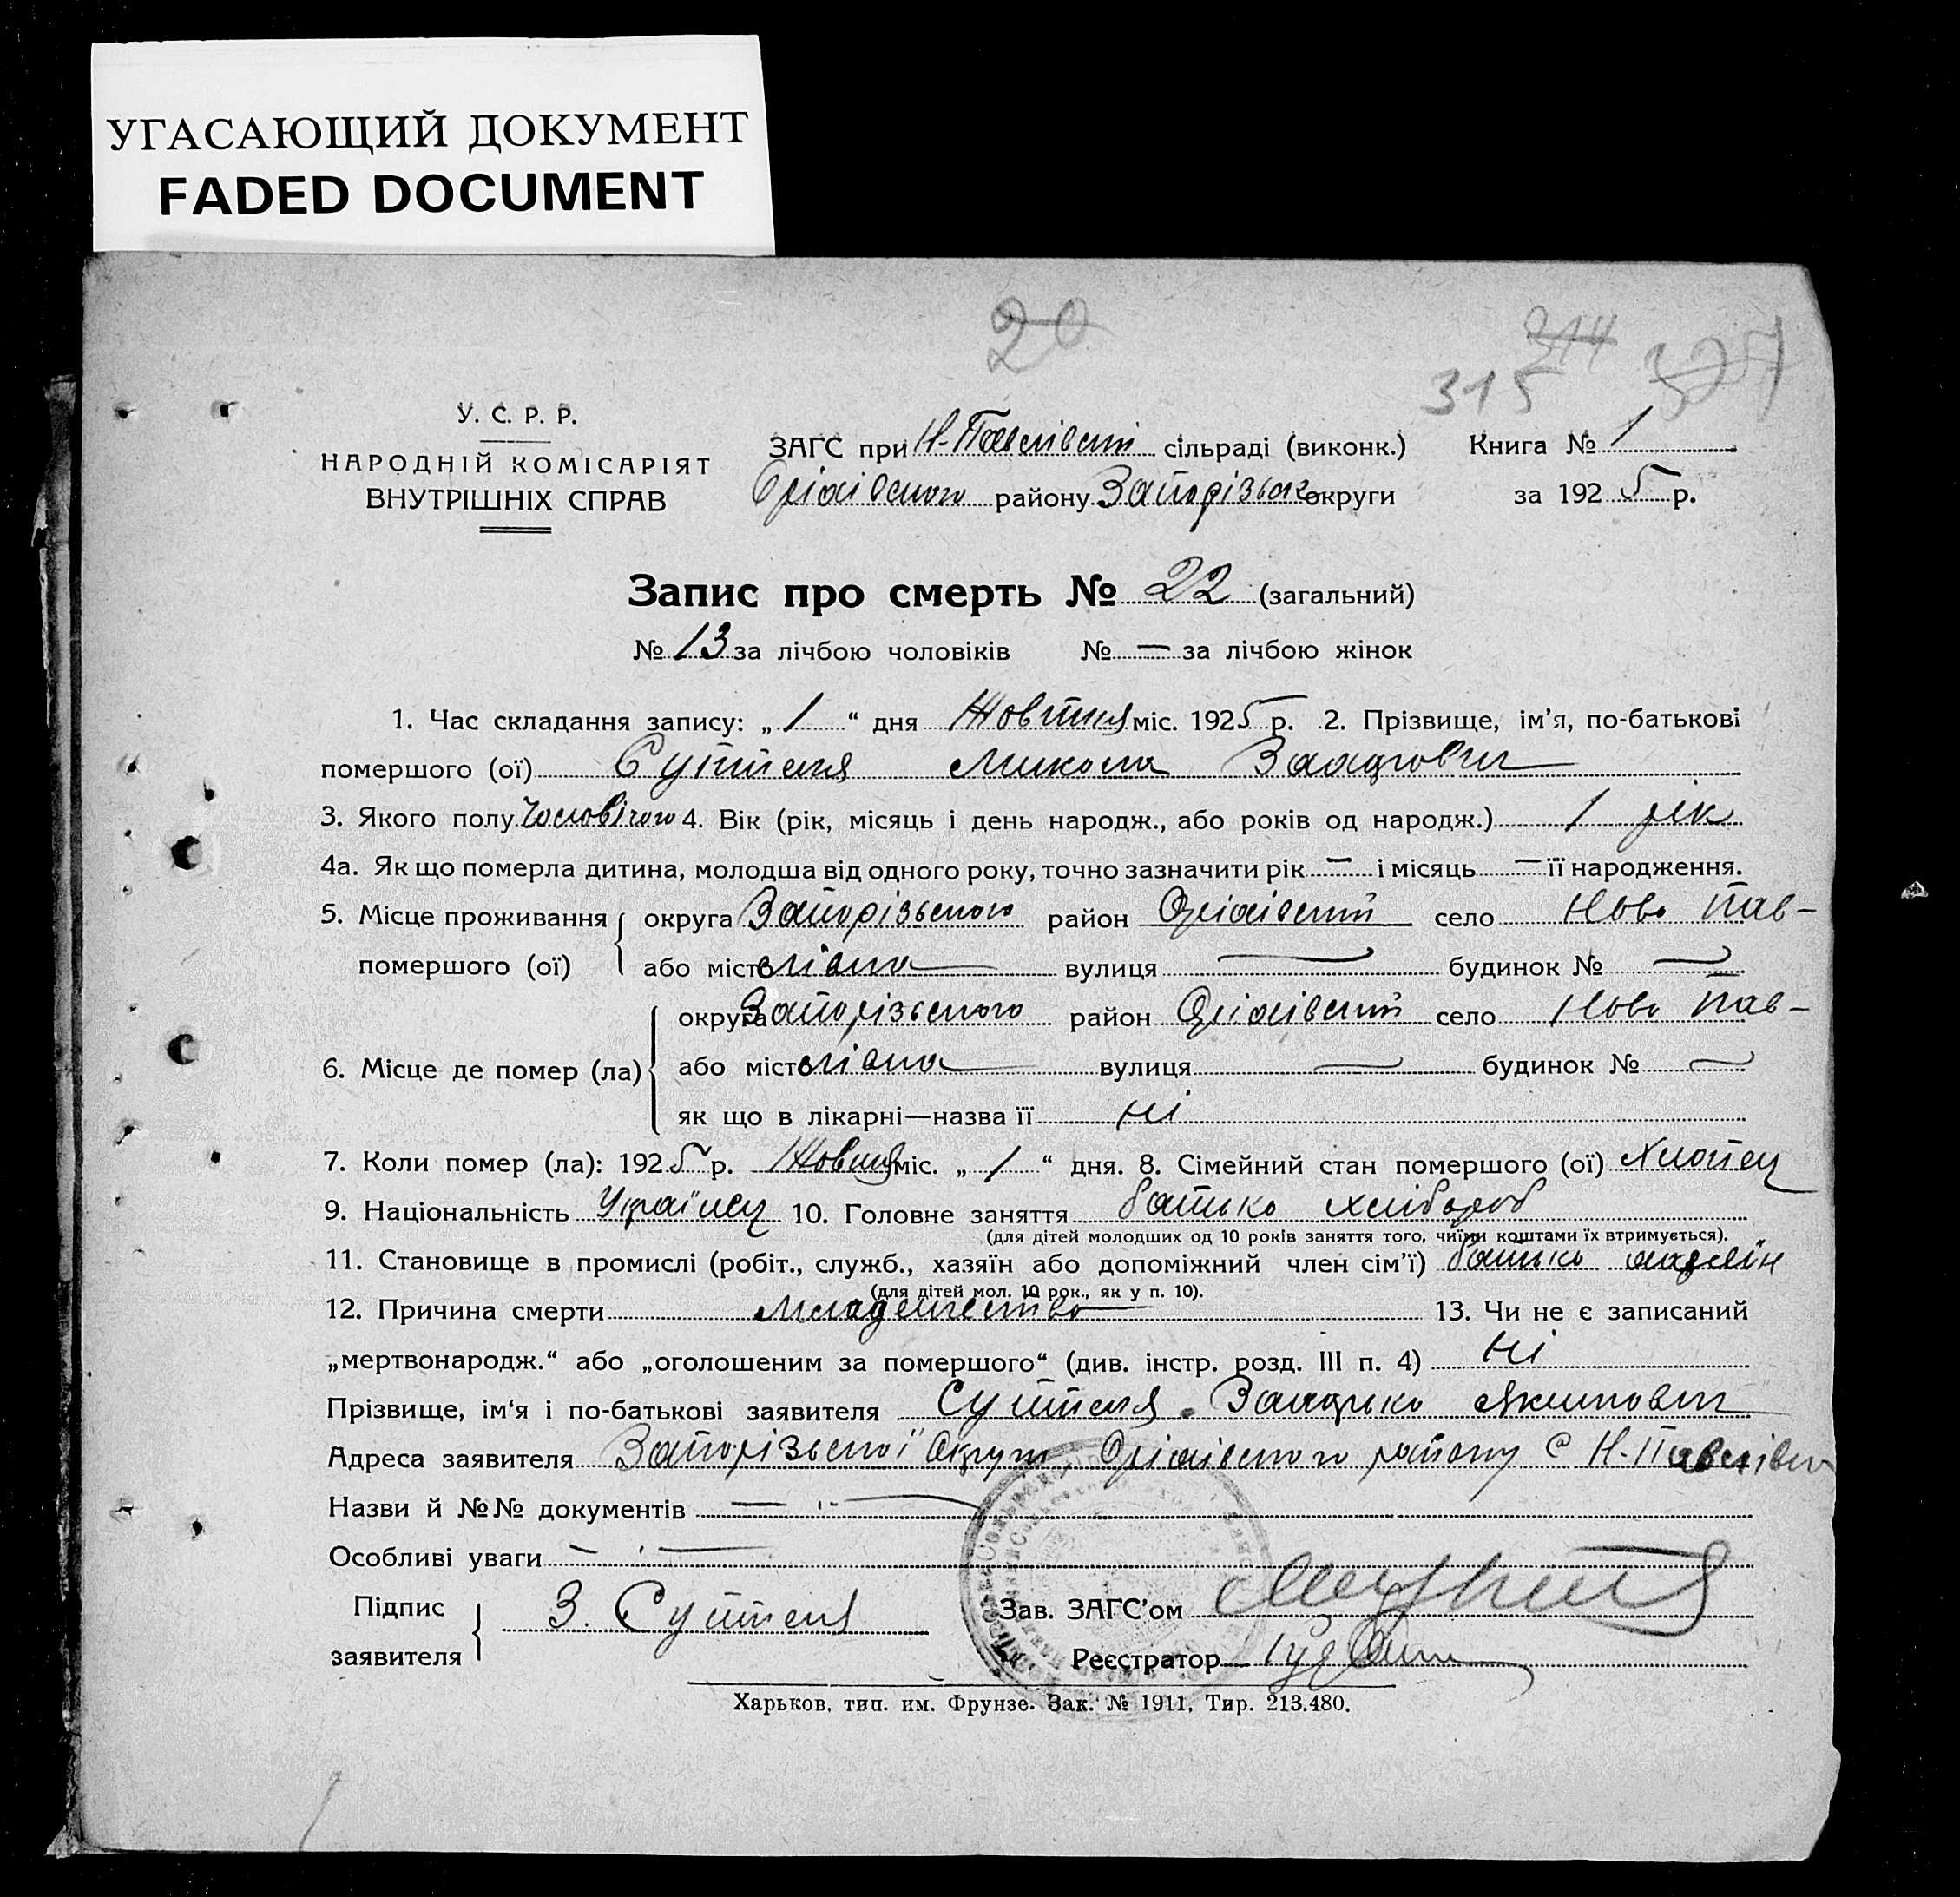 УГАСАЮЩИЙ ДОКУМЕНТ
FADED DOCUMENT
20
314
315
У. С. Р. Р.
НАРОДНІЙ КОМІСАРІЯТ
ВНУТРІШНІХ СПРАВ
ЗАГС при Н-Павлівскій сільраді (виконк.) Книга № 1
району Запорізьког округи за 1925 р.
Запис про смерть № 22 (загальний)
№ 13 за лічбою чоловіків № — за лічбою жінок
1. Час складання запису: „ 1 “ дня Жовтня міс. 1925 р. 2. Прізвище, ім’я, по-батькові
помершого (ої) Суптеля Микола
3. Якого полу Чоловічого 4. Вік (рік, місяць і день народж., або років од народж.) 1 рік
4а. Як що померла дитина, молодша від одного року, точно зазначити рік — і місяць — її народження.
5. Місце проживання округа Запорізьского район село Ново Пав-
помершого (ої) або місто лівка вулиця — будинок № —
округа Запорізьского район село Ново Пав-
6. Місце де помер (ла) або місто лівка вулиця — будинок № —
як що в лікарні—назва її ні
7. Коли помер (ла): 1925 р. Жовтня міс. „ 1 “ дня. 8. Сімейний стан помершого (ої) Хлопец
9. Національність Україпец 10. Головне заняття батько хлібороб
(для дітей молодших од 10 років заняття того, чиїми коштами їх втримується).
11. Становище в промислі (робіт., служб., хазяїн або допоміжний член сім’ї) батько хазяїн
(для дітей мол. 10 рок., як у п. 10).
12. Причина смерти Младенчество 13. Чи не є записаний
„мертвонародж.“ або „оголошеним за помершого“ (див. інстр. розд. III п. 4) ні
Прізвище, ім‘я і по-батькові заявителя Суптеля Якимович
Адреса заявителя Запорізьскої Округи району с Н-Павлівка
Назви й №№ документів —
Особливі уваги —
Підпис
заявителя З. Суптеля
Зав. ЗАГС’ом
Реєстратор
Харьков, тип. им. Фрунзе. Зак. № 1911, Тир. 213.480.